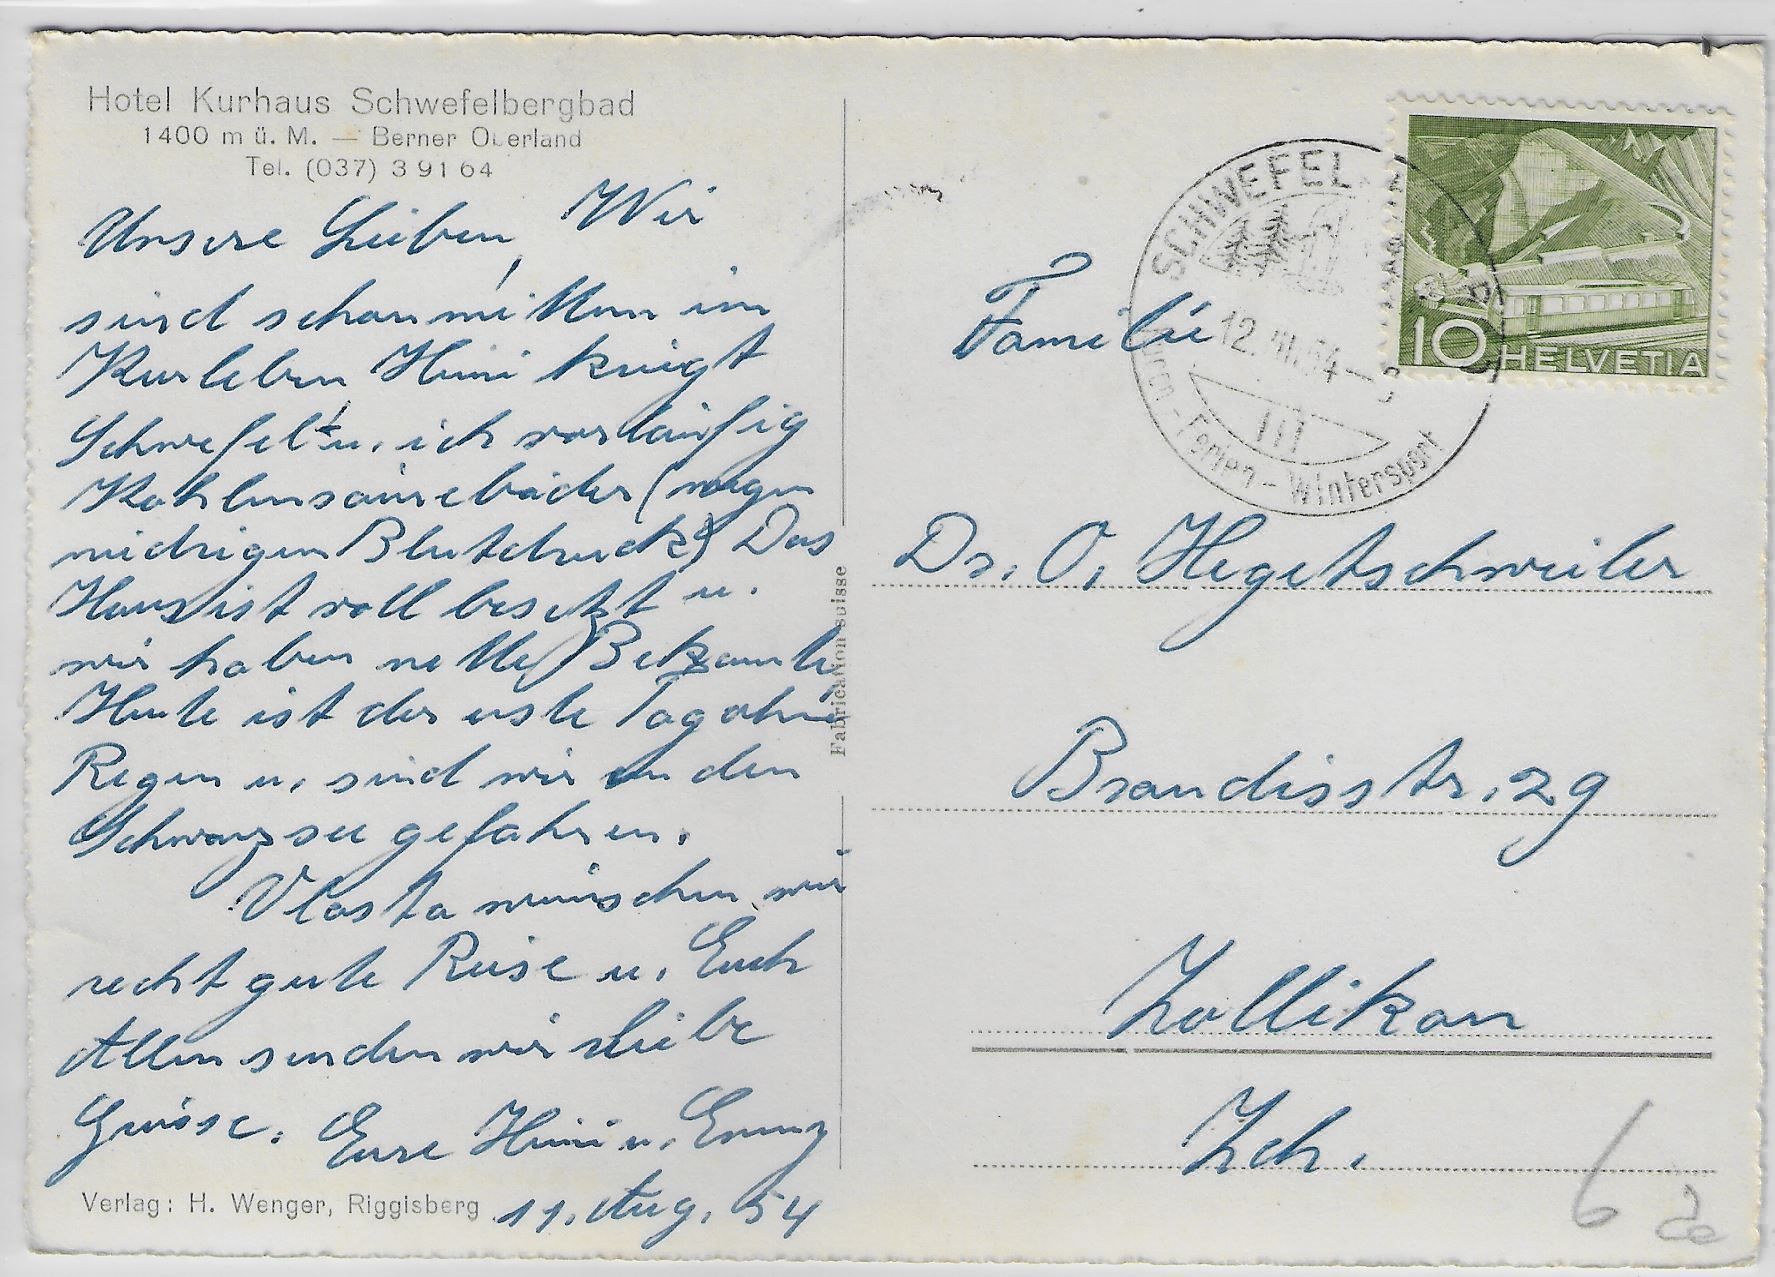 Hotel Kurhaus Schwefelbergbad
1400 m ü. M. — Berner Oberland
Tel. (037) 3 91 64
Unsere Lieben, Wir
sind schon mitten im
Kurleben Himi kriegt
Schwefel- u. ich vorläufig
Kohlensäurebäder (wegen
niedrigem Blutdruck) Das
Haus ist voll besetzt u.
wir haben nette Bekannte,
Heute ist der erste Tag ohne
Regen u. sind wir an den
Schwarzsee gefahren.
Vlasta wünschen wir
recht gute Reise u. Euch
Allen senden wir liebe
Grüsse. Eure Himi u. Emmy
11. Aug. 54
Verlag: H. Wenger, Riggisberg
Fabrication suisse
SCHWEFEL
12. VIII. 54
Kuren - Ferien - Wintersport
10 HELVETIA
Familie
Dr. O. Hegetschweiler
Brandisstr. 29
Zollikon
Zch.
6